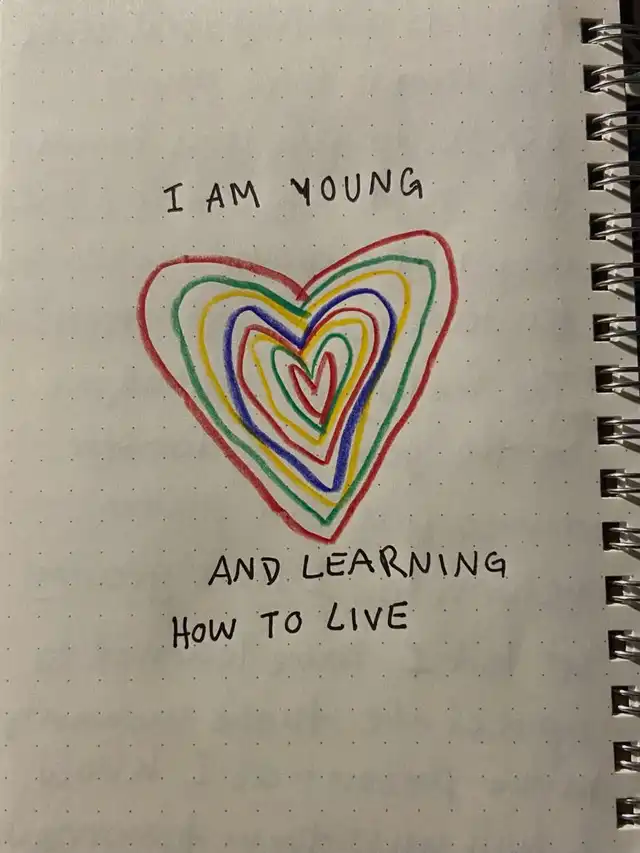 I AM YOUNG
AND LEARNING
HOW TO LIVE